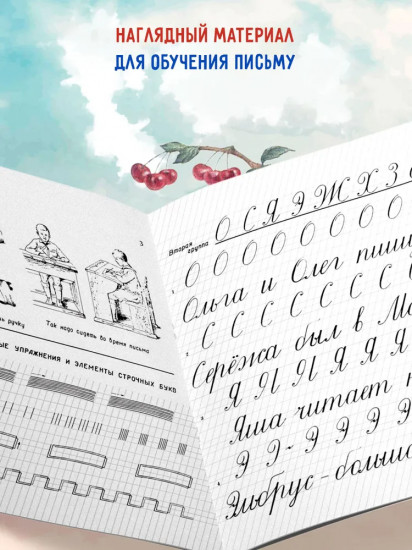 НАГЛЯДНЫЙ МАТЕРИАЛ
ДЛЯ ОБУЧЕНИЯ ПИСЬМУ
3
ручку
Так надо сидеть во время письма
УПРАЖНЕНИЯ И ЭЛЕМЕНТЫ СТРОЧНЫХ БУКВ
Вторая группа
О С Я Э Ж Х З
О О О О О О О О
Ольга и Олег
С С С С С С С
Серёжа был в
Я Я Я Я Я Я
Яша читает
Э Э Э Э Э Э
Эльбрус -